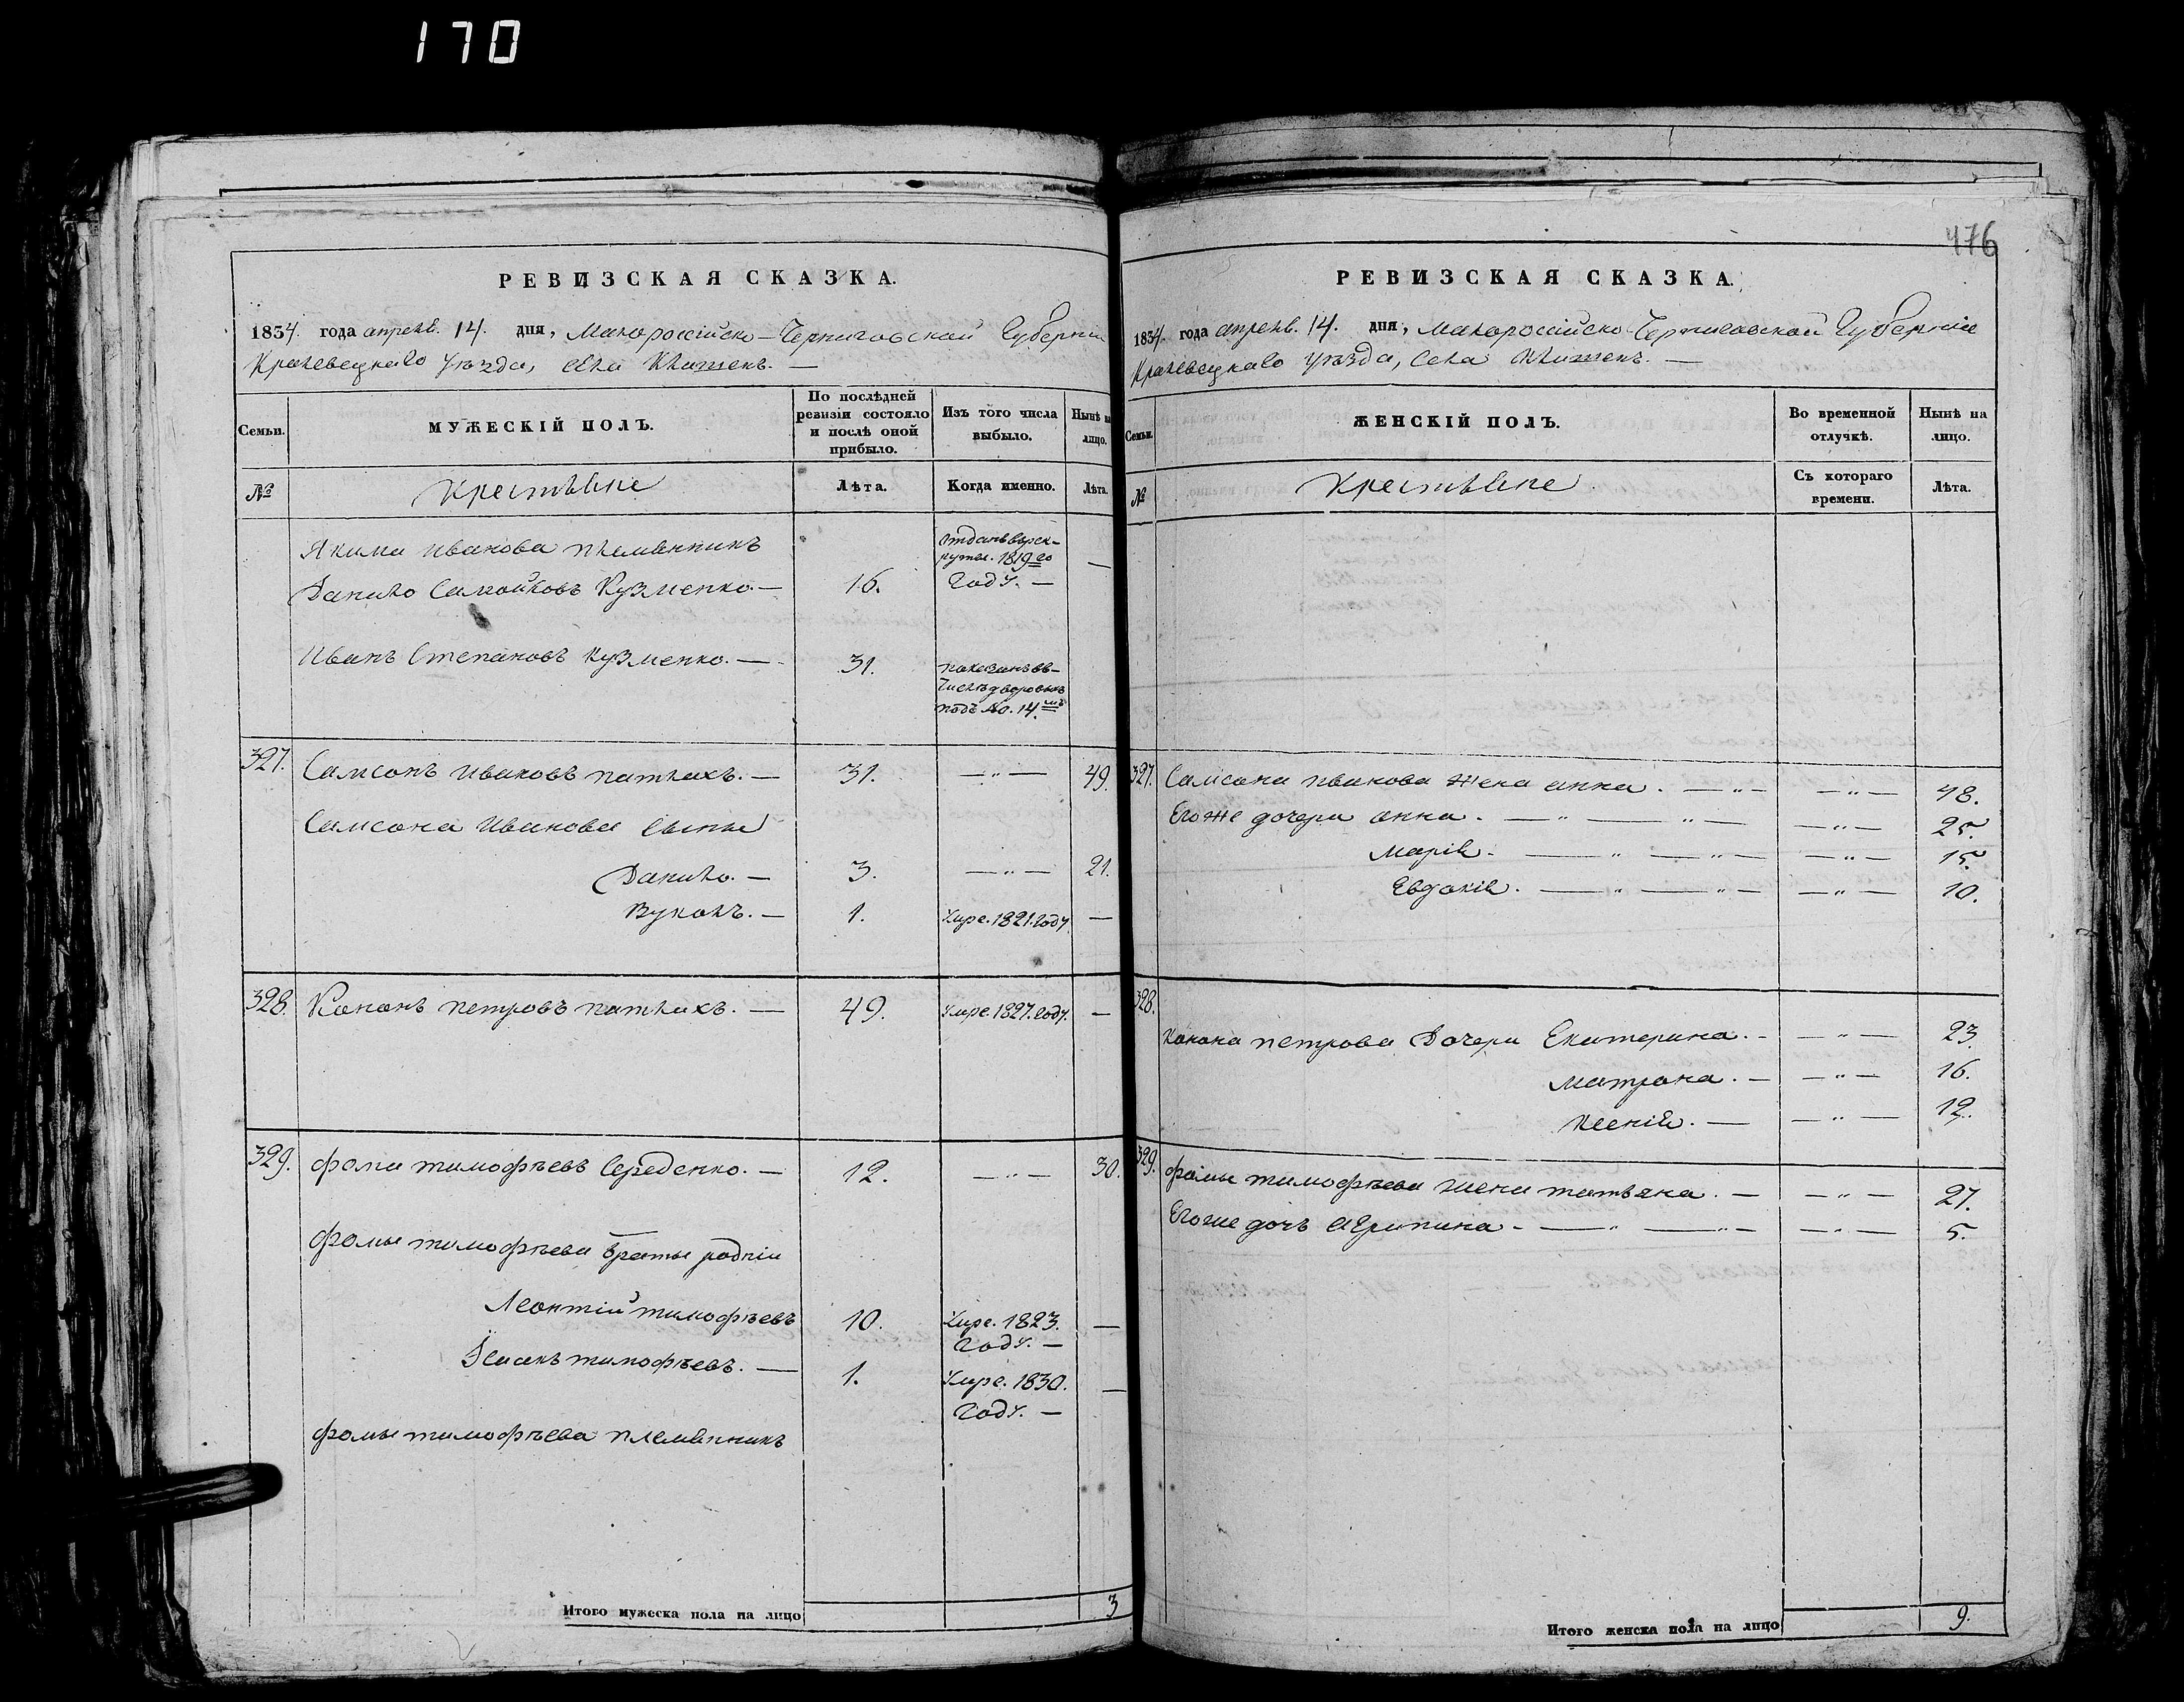 170
476
РЕВИЗСКАЯ СКАЗКА.
1834. года апреля. 14. дня, Малороссійско-Черниговской Губерніи
Кролевецкаго уѣзда, села Клишекъ. —
Семьи.
МУЖЕСКІЙ ПОЛЪ.
По послѣдней ревизіи состояло и послѣ оной прибыло.
Изъ того числа выбыло.
Нынѣ на лицо.
№
Крестьяне
Лѣта.
Когда именно.
Лѣта.
Якима Иванова племянникъ
Данило Самойловъ Кузменко. — 16. отданъ въ рекруты. 1819го Году. — —
Иванъ Степановъ Кузменко. — 31. показанъ въ числѣ дворовыхъ подъ No. 14мъ
327. Самсонъ Ивановъ патлахъ. — 31. — " — 49.
Самсона Иванова сыны
Данило. — 3. — " — 21.
Вуколъ. — 1. Умре. 1821. Году —
328. Кононъ петровъ патлахъ. — 49. Умре. 1827. Году. —
329. фома тимофѣевъ Середенко. — 12. — " — 30.
фомы тимофѣева братья родніи
Леонтій тимофѣевъ 10. Умре. 1823. Году. — —
Исаакъ тимофѣевъ. — 1. Умре. 1830. Году. — —
фомы тимофѣева племянникъ
Итого мужеска пола на лицо 3
РЕВИЗСКАЯ СКАЗКА.
1834. года апреля. 14. дня, Малороссійско Черниговской Губерніи
Кролевецкаго уѣзда, села Клишекъ. —
Семьи.
ЖЕНСКІЙ ПОЛЪ.
Во временной отлучкѣ.
Нынѣ на лицо.
№
Крестьяне.
Съ котораго времени.
Лѣта.
327. Самсона Иванова жена анна. — " — — " — 48.
Егоже дочери анна. — " — " — — " — 25.
Марія. — " — " — — " — 15.
Евдокія. — " — " — — " — 10.
328.
Конона петрова Дочери Екатерина. - — " — 23
матрона. — — " — 16.
Ксенія. — — " — 12.
329. фомы тимофѣева жена татьяна. — — " — 27.
Егоже дочь агрипина - — " — " — — " — 5.
Итого женска пола на лицо 9.